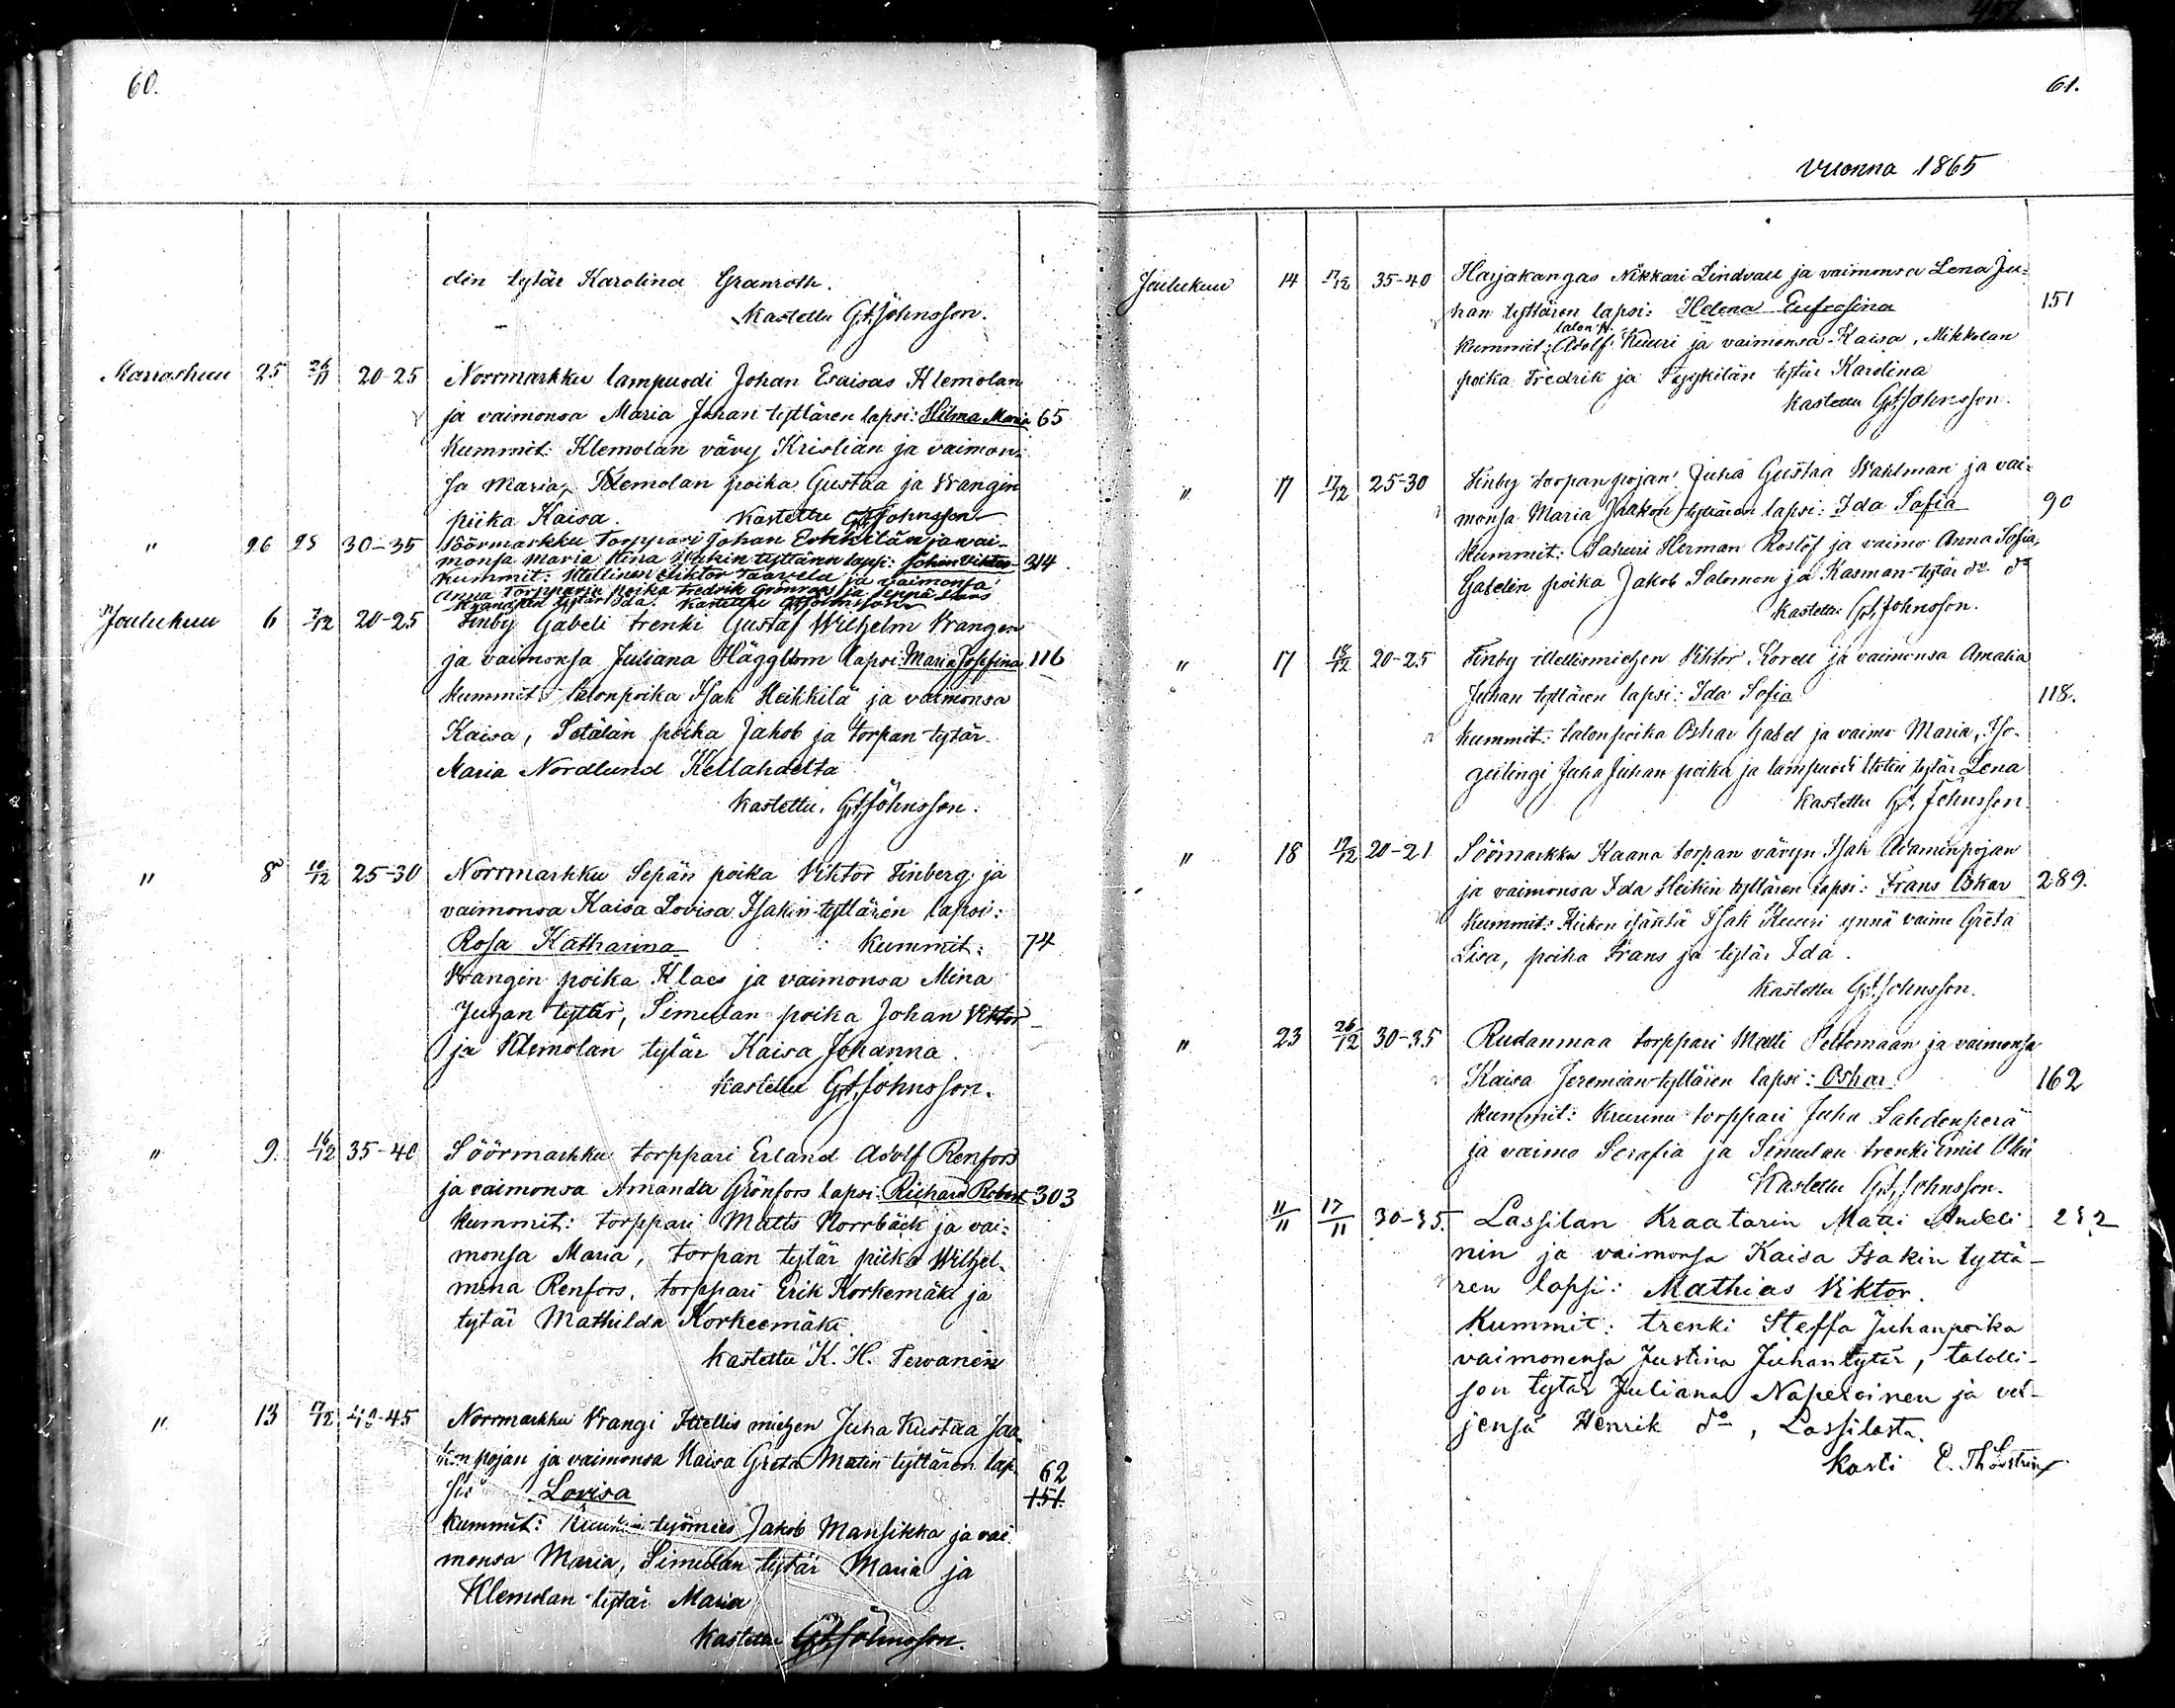 60.
din tytär Karolina Granroth.
Kastettu G.A. Johnsson.
Marraskuu 25 26/11 20-25 Norrmarkku lampuodi Johan Esaisas Klemolan
ja vaimonsa Maria Johan tyttären lapsi: Hilma Maria 65
Kummit: Klemolan vävy Kristian ja vaimon-
sa Maria, Klemolan poika Gustaa ja Vrangin
piika Kaisa. Kastettu G.A. Johnsson
" 26 30-35 Söörmarkku Torppari Johan Erkkilän ja vai-
monsa Maria Stina tyttären lapsi: Johan Viktor 314
Kummit: Itellinen Viktor Taavela ja vaimonsa
Anna Torpparin poika Fredrik Grönroos ja Seppä
tytär Ida. Kastettu G.A. Johnsson
Joulukuu 6 7/12 20-25 Finby Gabeli trenki Gustaf Wilhelm Vrangen
ja vaimonsa Juliana Häggblom lapsi: Maria Josefina 116
Kummit: talonpoika Isak Heikkilä ja vaimonsa
Kaisa, Setälän poika Jakob ja torpan tytär
Maria Nordlund Kellahdelta
Kastettu. G.A. Johnsson.
" 8 10/12 25-30 Norrmarkku Sepän poika Viktor Finberg ja
vaimonsa Kaisa Lovisa Isakin tyttären lapsi:
Rosa Katharina Kummit: 74
Vrangin poika Klaes ja vaimonsa Mina
Juhan tytär, Simulan poika Johan Viktor
ja Klemolan tytär Kaisa Johanna.
Kastettu G.A. Johnsson.
" 9. 16/12 35-40 Söörmarkku torppari Erland Adolf Renfors
ja vaimonsa Amanda Grönfors lapsi: Richard Robert 303
Kummit: torppari Matts Norrbäck ja vai-
monsa Maria, torpan tytär piika Wilhel-
mina Renfors, torppari Erik Korkemäki ja
tytär Mathilda Korkeemäki.
Kastettu K. H. Terwanen
" 13 17/12 40-45 Norrmarkku Vrangi Itellis miehen Juha Kustaa Jaa-
kon pojan ja vaimonsa Kaisa Greta Matin tyttären lap-
si: Lovisa 62
151.
Kummit: työmies Jakob Mansikka ja vai-
monsa Maria, Simulan tytär Maria ja
Klemolan tytär Maria
Kastettu G.A. Johnsson.
61.
Vuonna 1865
Joulukuu 14 17/12 35-40 Harjakangas Nikkari Lindvall ja vaimonsa Lena Ju-
han tyttären lapsi: Helena Eufrosina 151
talon p.
Kummit: Adolf Kuuri ja vaimonsa Kaisa, Mikkolan
poika Fredrik ja Tyykilän tytär Karolina
Kastettu G.A. Johnsson.
" 17 17/12 25-30 Finby torpan pojan Juha Gustaa Wahlman ja vai-
monsa Maria Jaakon tyttären lapsi: Ida Sofia 90
Kummit: Sahuri Herman Roslöf ja vaimo Anna Sofia,
Gabelin poika Jakob Salomon ja Kasman tytär do do
Kastettu G.A. Johnsson.
" 17 18/12 20-25 Finby itellismiehen Viktor Korell ja vaimonsa Amalia
Juhan tyttären lapsi: Ida Sofia 118.
Kummit: talonpoika Oskar Gabel ja vaimo Maria,
Juha Juhan poika ja lampuodi tytär Lena
Kastettu G.A. Johnsson.
" 18 19/12 20-21 Söörmarkku Kaana torpan vävyn Isak Adaminpojan
ja vaimonsa Ida Heikin tyttären lapsi: Frans Oskar 289.
Kummit: isäntä Isak Kuuri ynnä vaimo Greta
Lisa, poika Frans ja tytär Ida.
Kastettu G.A. Johnsson.
" 23 26/12 30-35 Rudanmaa torppari Matti Peltomaan ja vaimonsa
Kaisa Jeremian tyttären lapsi: Oskar 162
Kummit: Kruunu torppari Juha Lahdenperä
ja vaimo Serafia ja Simulan trenki Emil
Kastettu G.A. Johnsson.
11/11 17/11 30-35. Lassilan Kraatarin Matti Andeli-
nin ja vaimonsa Kaisa Isakin tyttä-
ren lapsi: Mathias Viktor.
Kummit: trenki Steffa Juhanpoika
vaimonensa Justina Juhantytär, talolli-
sen tytär Juliana Naperoinen ja vel-
jensä Henrik do, Lassilasta.
Kasti E. Thorström